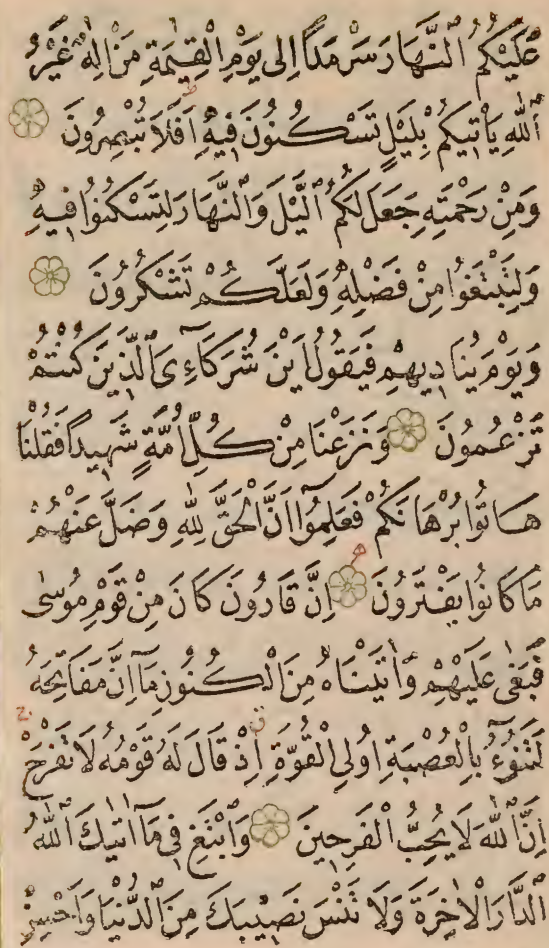 عَلَيْكُمُ ٱلنَّهَارَ سَرْمَدًا اِلٰى يَوْمِ الْقِيٰمَةِ مَنْ اِلٰهٌ غَيْرُ
ٱللّٰهِ يَأْتِيكُمْ بِلَيْلٍ تَسْكُنُونَ فِيهِ ط اَفَلَا تُبْصِرُونَ
وَمِنْ رَحْمَتِهِ جَعَلَ لَكُمُ ٱلَّيْلَ وَٱلنَّهَارَ لِتَسْكُنُوا فِيهِ
وَلِتَبْتَغُوا مِنْ فَضْلِهِ وَلَعَلَّكُمْ تَشْكُرُونَ
وَيَوْمَ يُنَادِيهِمْ فَيَقُولُ اَيْنَ شُرَكَآءِىَ ٱلَّذِينَ كُنْتُمْ
تَزْعُمُونَ وَنَزَعْنَا مِنْ كُلِّ اُمَّةٍ شَهِيدًا فَقُلْنَا
هَاتُوا بُرْهَانَكُمْ فَعَلِمُوٓا اَنَّ الْحَقَّ لِلّٰهِ وَضَلَّ عَنْهُمْ
مَا كَانُوا يَفْتَرُونَ اِنَّ قَارُونَ كَانَ مِنْ قَوْمِ مُوسٰى
فَبَغٰى عَلَيْهِمْ وَاٰتَيْنَاهُ مِنَ الْكُنُوزِ مَآ اِنَّ مَفَاتِحَهُ
لَتَنُٓوءُ بِالْعُصْبَةِ اُولِى الْقُوَّةِ ق اِذْ قَالَ لَهُ قَوْمُهُ لَا تَفْرَحْ
اِنَّ ٱللّٰهَ لَا يُحِبُّ الْفَرِحِينَ وَابْتَغِ فِى مَآ اٰتٰيكَ ٱللّٰهُ
ٱلدَّارَ الْاٰخِرَةَ وَلَا تَنْسَ نَصِيبَكَ مِنَ ٱلدُّنْيَا وَاَحْسِنْ